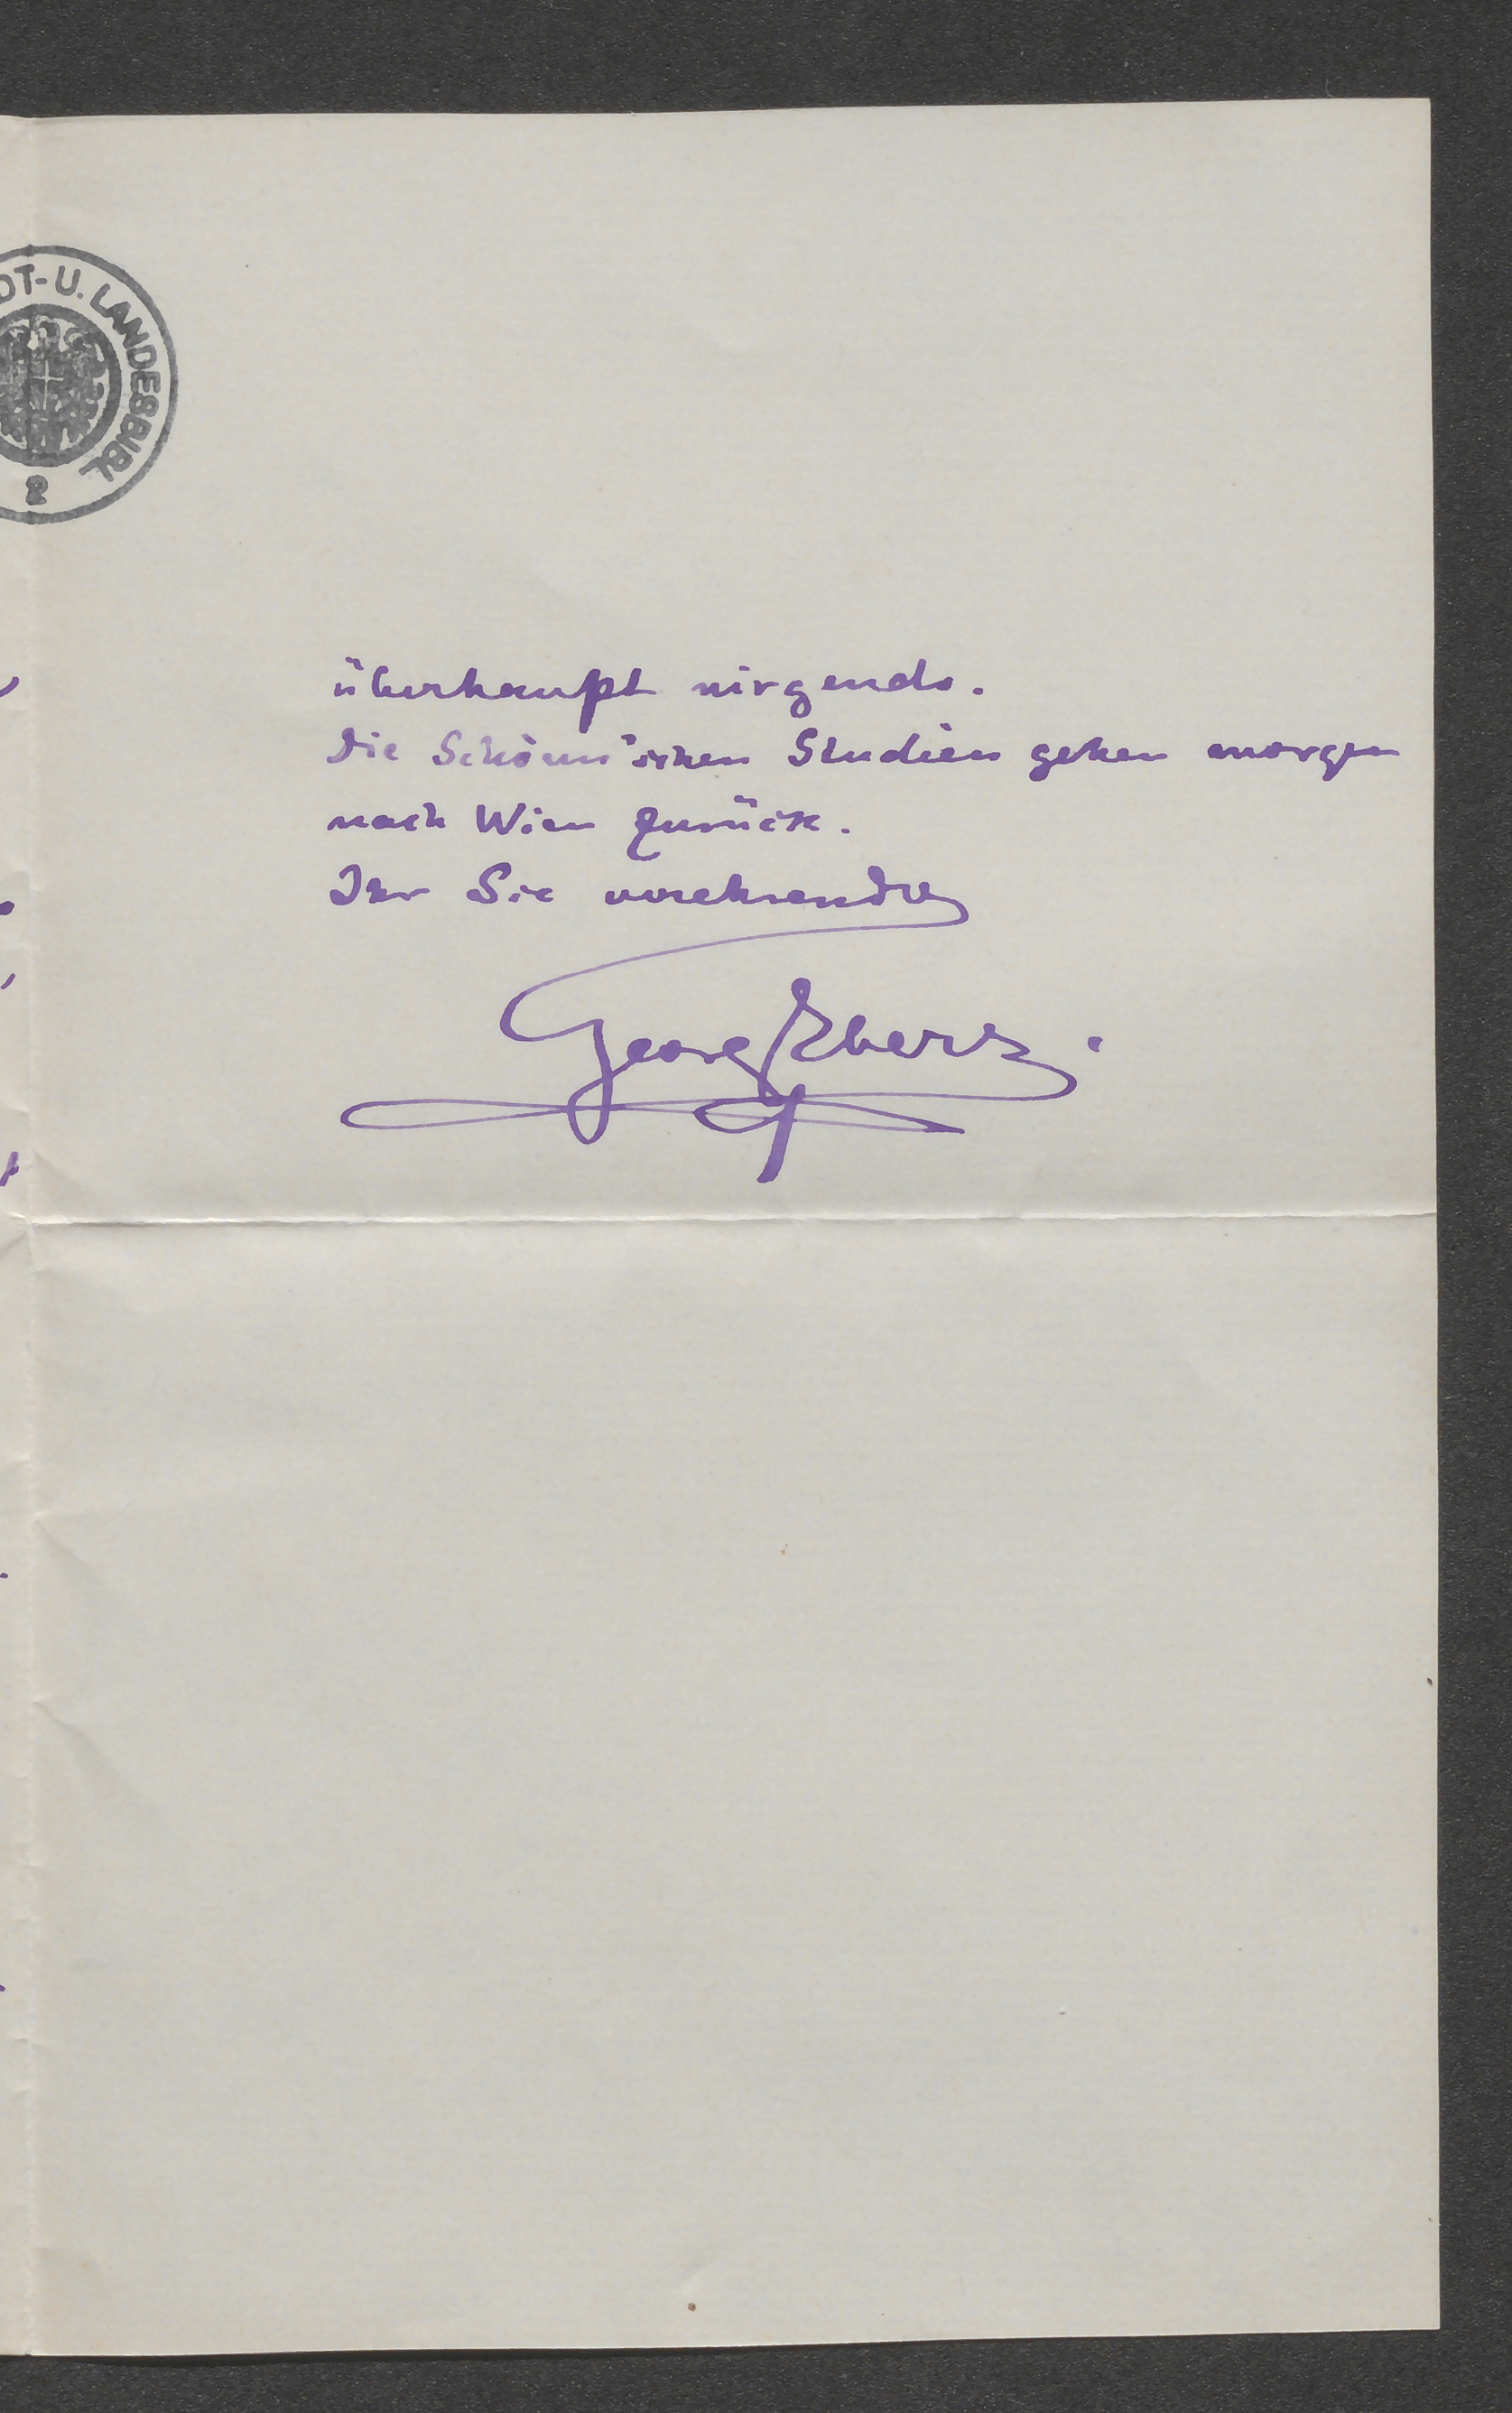 DT-U. LANDESBIBL
2
überhaupt nirgends.
Die Schönn'schen Studien gehen morgen
nach Wien zurück.
Ihr Sie verehrender
Georg Ebers.